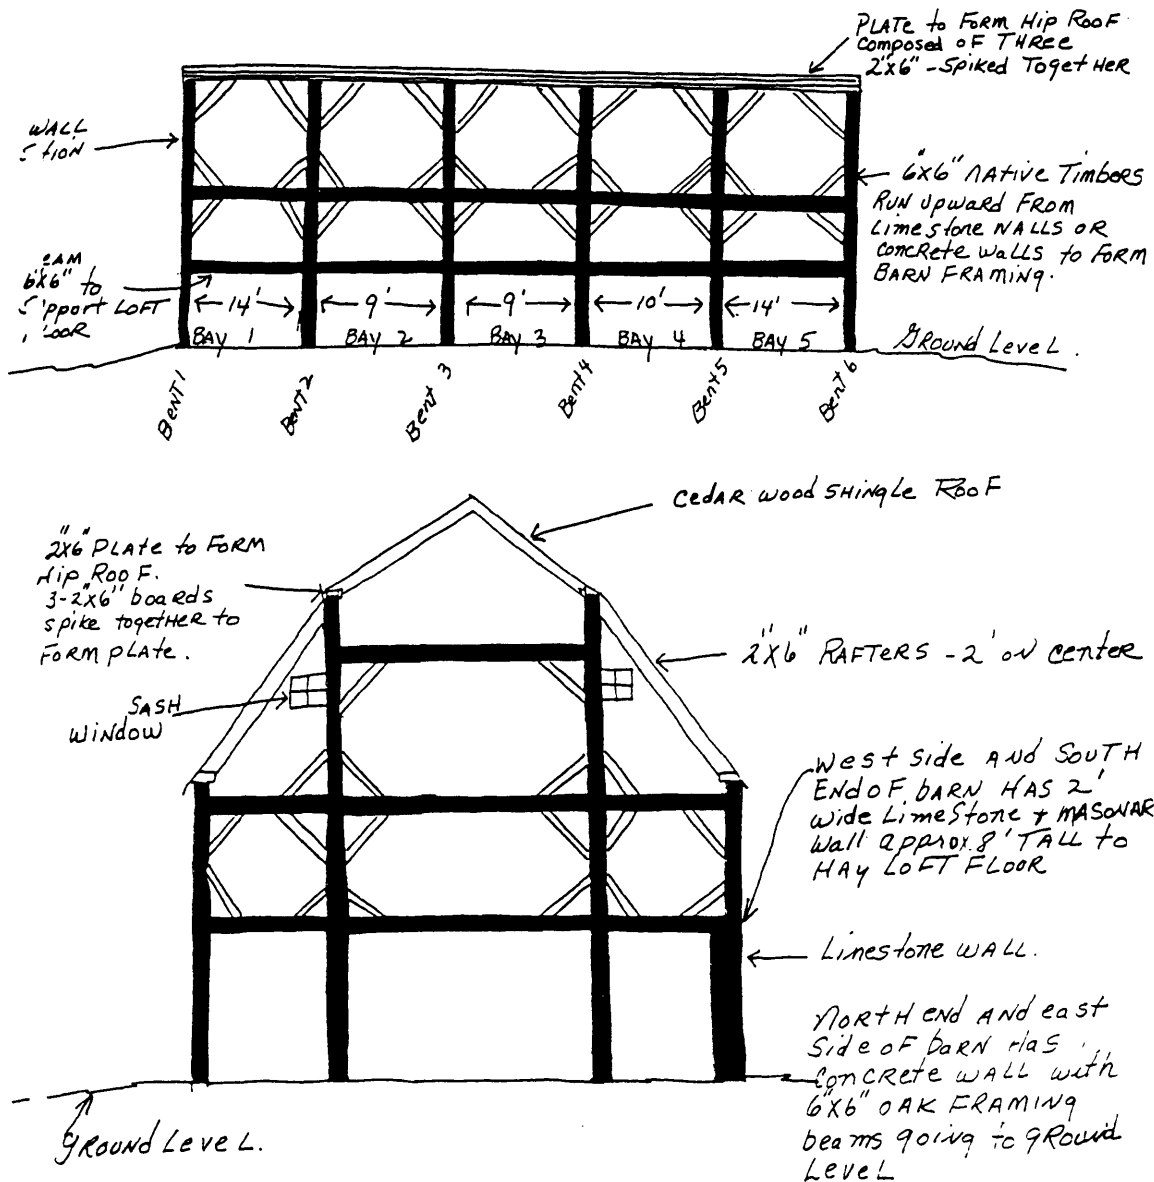 PLATE to FORM Hip ROOF
composed OF THREE
2"x6" - Spiked TogetHER
WALL
6"x6" NATIVE Timbers
RUN upward FROM
Limestone WALLS OR
concrete walls to FORM
BARN FRAMING.
6"x6" to
LOFT
14'
9'
9'
10'
14'
BAY 1
BAY 2
BAY 3
BAY 4
BAY 5
GROUND LEVEL.
BENT 1
BENT 2
Bent 3
Bent 4
Bent 5
Bent 6
CedAR wood SHINGLE ROOF
2"x6" PLATE to FORM
Hip ROOF.
3-2"x6" boards
spike togetHER to
FORM pLATE.
2"x6" RAFTERS - 2' ON center
SASH
WINDOW
West side AND SOUTH
END OF bARN HAS 2'
wide LimeStone + MASONAR
Wall approx. 8' TALL to
HAy LOFT FLOOR
Limestone WALL.
NORTH END AND east
Side OF bARN HAS
CONCRETE WALL with
6"x6" OAK FRAMING
beams going to gROUND
LEVEL
gROUND LEVEL.